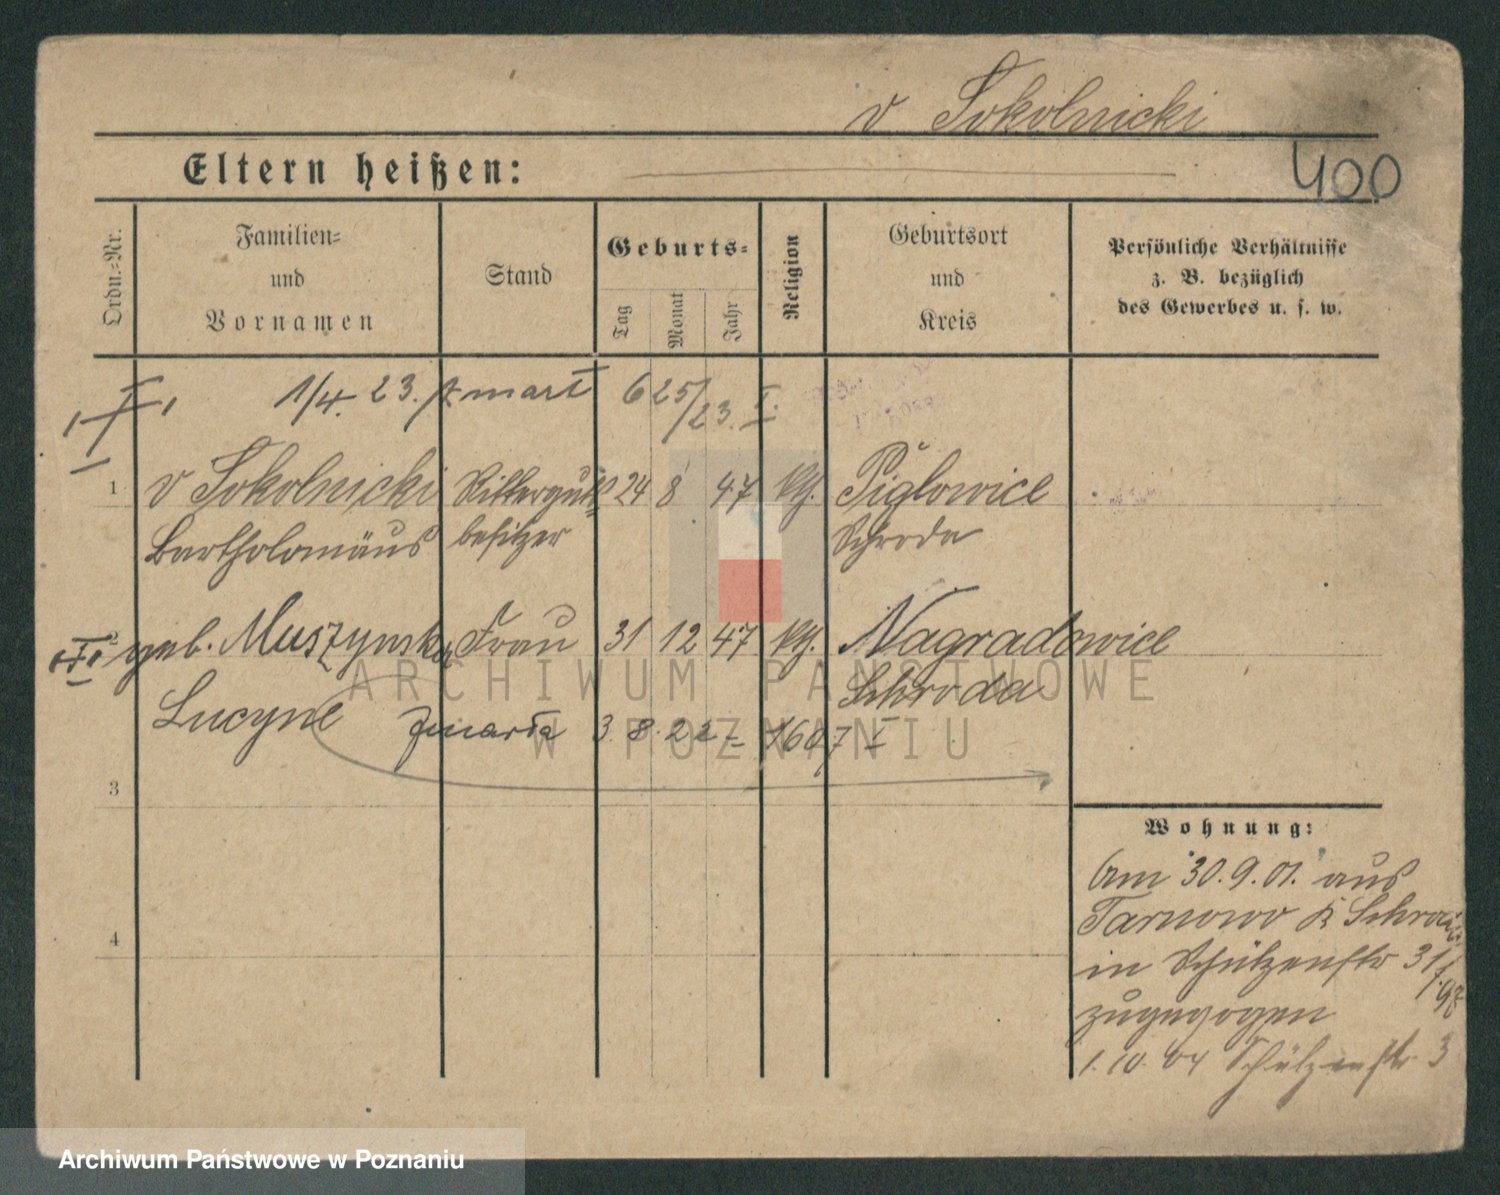 v Sokolnicki
Eltern heißen:
400
Ordn.=Nr.
Familien=
und
Vornamen
Stand
Geburts=
Tag
Monat
Jahr
Religion
Geburtsort
und
Kreis
Persönliche Verhältnisse
z. B. bezüglich
des Gewerbes u. s. w.
1/4. 23. zmarł 625/23. I.
1 v Sokolnicki Ritterguts= 24 8 47 kth. Piglowice
Bartholomäus besitzer Schroda
2 geb. Muszynska Frau 31 12 47 kth. Nagradowice
Lucyne Schroda
zmarła 3. 8. 22 = 1607 I
3
4
Wohnung:
Am 30.9.01. aus
Tarnowo K Schroda
in Schützenstr 31
zugezogen
1. 10. 04 Schützenstr. 3
ARCHIWUM PAŃSTWOWE
W POZNANIU
Archiwum Państwowe w Poznaniu